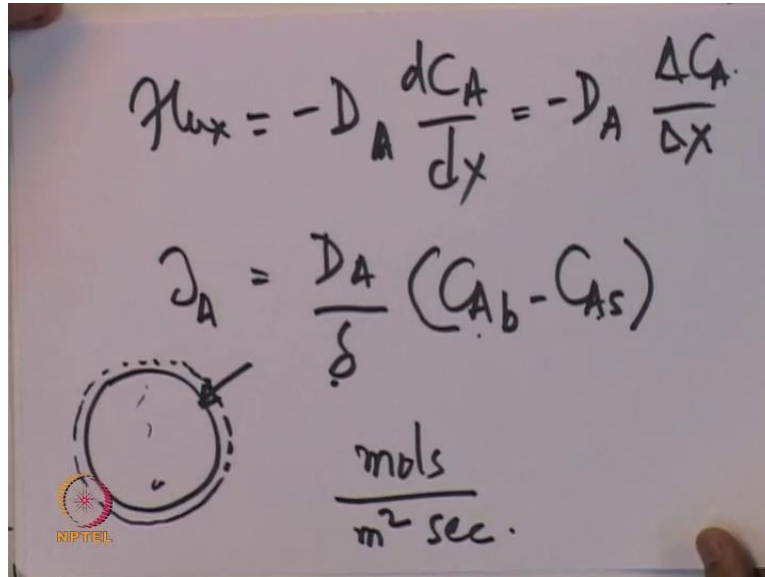 Flux = -D_A dC_A/dx = -D_A ΔC_A/Δx
J_A = D_A/δ (C_Ab - C_As)
mols/m² sec.
NPTEL